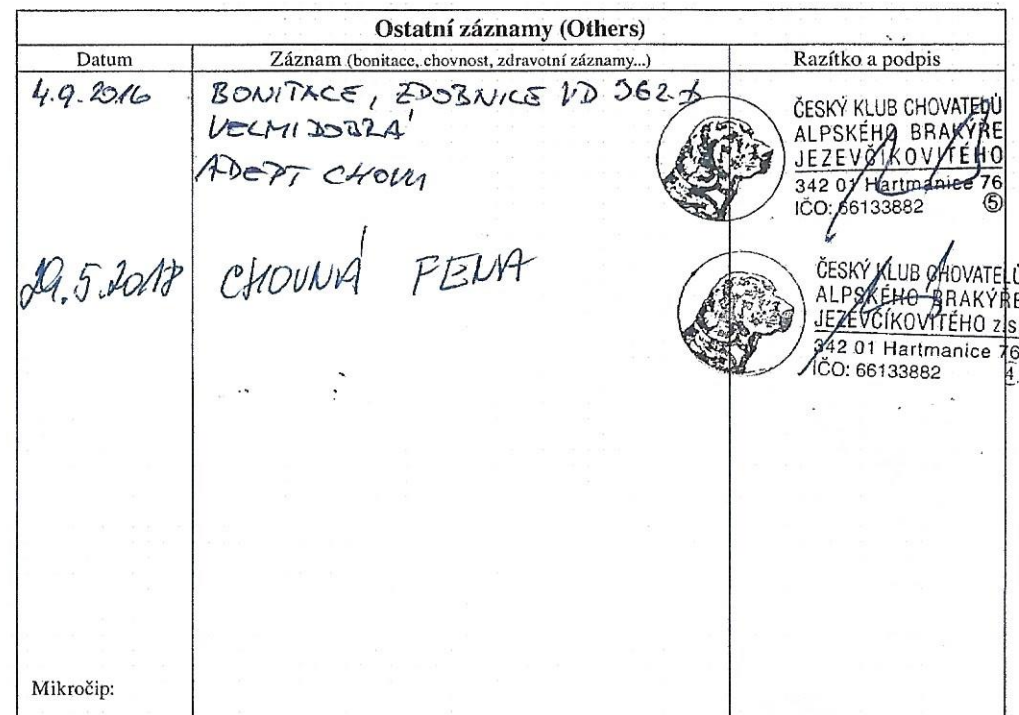 Ostatní záznamy (Others)
Datum Záznam (bonitace, chovnost, zdravotní záznamy...) Razítko a podpis
4.9.2016 BONITACE, ZDOBNICE VD
VELMI DOBRÁ
ADEPT CHOVU
ČESKÝ KLUB CHOVATELŮ
ALPSKÉHO BRAKÝŘE
JEZEVČÍKOVITÉHO
342 01 Hartmanice 76
IČO: 66133882 ⑤
29.5.2018 CHOVNÁ FENA
ČESKÝ KLUB CHOVATELŮ
ALPSKÉHO BRAKÝŘE
JEZEVČÍKOVITÉHO z.s
342 01 Hartmanice 76
IČO: 66133882 4
Mikročip: